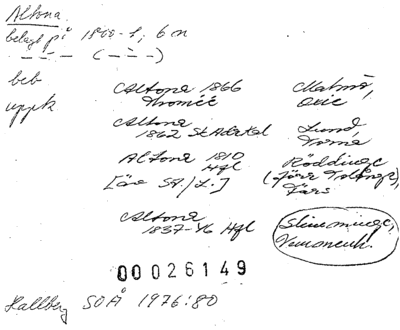 Altona
belagt på 1800-t, 6 m
— — — ( — — — )
beb
uppk
Altona 1866 Malmö,
Thomée Oxie
Altona Lund,
1862 StAdrkal Torna
Altona 1810 Röddinge
Hgl (förr Tolånga),
[äv SA/L.] Färs
Altona Slimminge,
1837-46 Hgl Vemmenh.
00026149
Hallberg SOÅ 1976:80